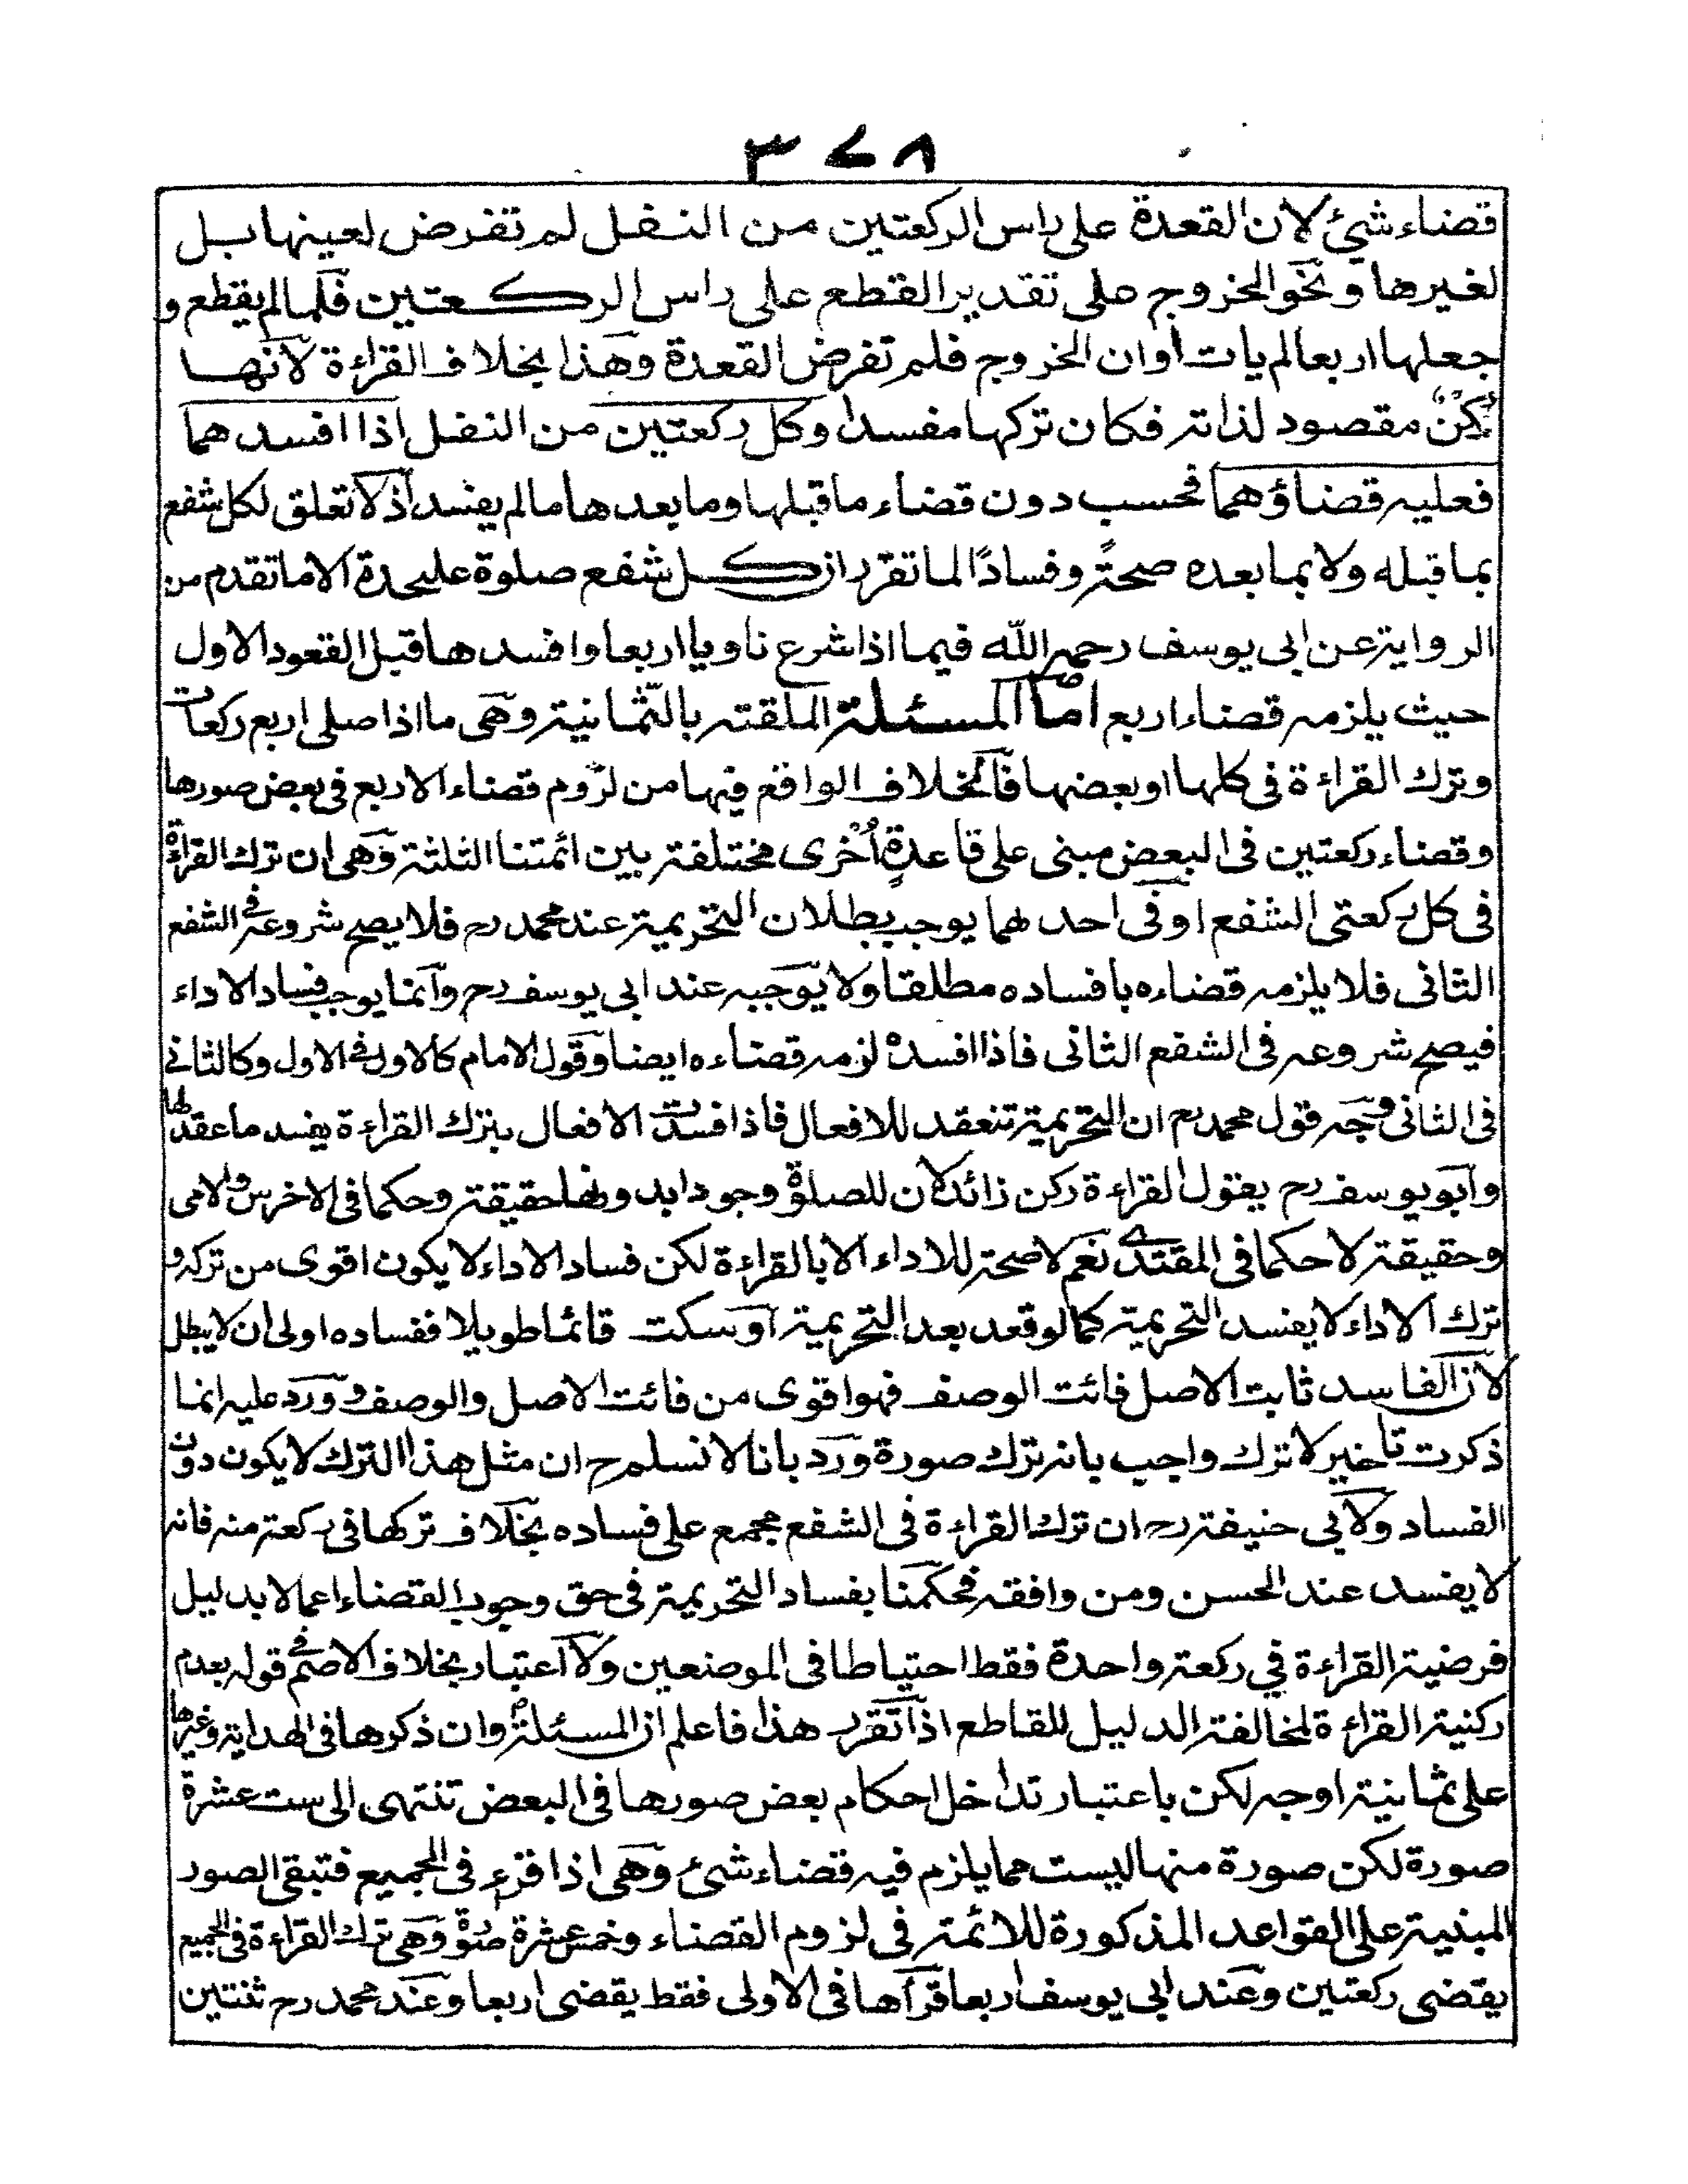 ٣٧٨
قضاء شئ لان القعدة على راس الركعتين من النفل لم تفرض لعينها بل
لغيرها وتحو الخروج على تقدير القطع على راس الركعتين فلما لم يقطع و
جعلها اربعا لم يات اوان الخروج فلم تفرض القعدة وهذا بخلاف القراءة لانها
ركن مقصود لذاته فكان تركها مفسدا وكل ركعتين من النفل اذا افسدهما
فعليه قضاؤهما فحسب دون قضاء ما قبلها وما بعدها ما لم يفسد اذ لا تعلق لكل شفع
بما قبله ولا بما بعده صحةً وفسادًا لما تقرر ان كل شفع صلوة عليحدة الا ما تقدم من
الرواية عن ابى يوسف رحمه الله فيما اذا شرع ناويا اربعا وافسدها قبل القعود الاول
حيث يلزمه قضاء اربع امّا المسئلة الملقته بالثمانية وهى ما اذا صلى اربع ركعات
وترك القراءة فى كلها او بعضها فالخلاف الواقع فيها من لزوم قضاء الاربع فى بعض صورها
وقضاء ركعتين فى البعض مبنى على قاعدةٍ اُخرى مختلفة بين ائمتنا الثلثة وهى ان ترك القراءة
فى كل ركعتى الشفع او فى احدلهما يوجب بطلان التحريمة عند محمد رح فلا يصح شروعه فى الشفع
الثانى فلا يلزمه قضاءه بافساده مطلقا ولا يوجبه عند ابى يوسف رح وانما يوجب فساد الاداء
فيصح شروعه فى الشفع الثانى فاذا افسده لزمه قضاءه ايضا وقول الامام كالاول فى الاول وكالثانى
فى الثانى وجه قول محمد رح ان التحريمة تنعقد للافعال فاذا فسدت الافعال بترك القراءة يفسد ما عقد لها
وابو يوسف رح يقول القراءة ركن زائد لان للصلوة وجودا بدونها حقيقة وحكما فى الاخرس والامى
وحقيقة لا حكما فى المقتدى نعم لا صحة للاداء الا بالقراءة لكن فساد الاداء لا يكون اقوى من تركه و
ترك الاداء لا يفسد التحريمة كما لو قعد بعد التحريمة او سكت قائما طويلا ففساده اولى ان لا يبطل
لان الفاسد ثابت الاصل فائت الوصف فهو اقوى من فائت الاصل والوصف و ورد عليه انما
ذكرت تاخير لا ترك واجب بانه ترك صورة ورد بانا لا نسلم ح ان مثل هذا الترك لا يكون دون
الفساد ولابى حنيفة رح ان ترك القراءة فى الشفع مجمع على فساده بخلاف تركها فى ركعة منه فانه
لا يفسد عند الحسن ومن وافقه فحكمنا بفساد التحريمة فى حق وجوب القضاء اعمالا بدليل
فرضية القراءة في ركعة واحدة فقط احتياطا فى الموضعين ولا اعتبار بخلاف الاصم فى قوله بعدم
ركنية القراءة لمخالفة الدليل للقاطع اذا تقرر هذا فاعلم ان المسئلة وان ذكرها فى الهداية وغيرها
على ثمانية اوجه لكن باعتبار تداخل احكام بعض صورها فى البعض تنتهى الى ست عشرة
صورة لكن صورة منها ليست مما يلزم فيه قضاء شئ وهى اذا قرء فى الجميع فتبقى الصور
المبنية على القواعد المذكورة للائمة فى لزوم القضاء وخمس عشرة صورة وهى ترك القراءة فى الجميع
يقضى ركعتين وعند ابى يوسف اربعا قرأها فى الاولى فقط يقضى اربعا وعند محمد رح ثنتين